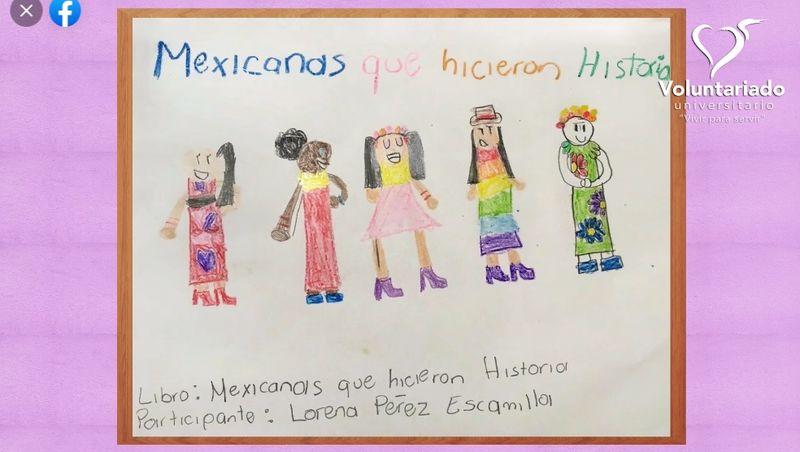 Mexicanas que hicieron Historia
Voluntariado
universitario
"Vivir para servir"
Libro: Mexicanas que hicieron Historia
Participante: Lorena Pérez Escamilla